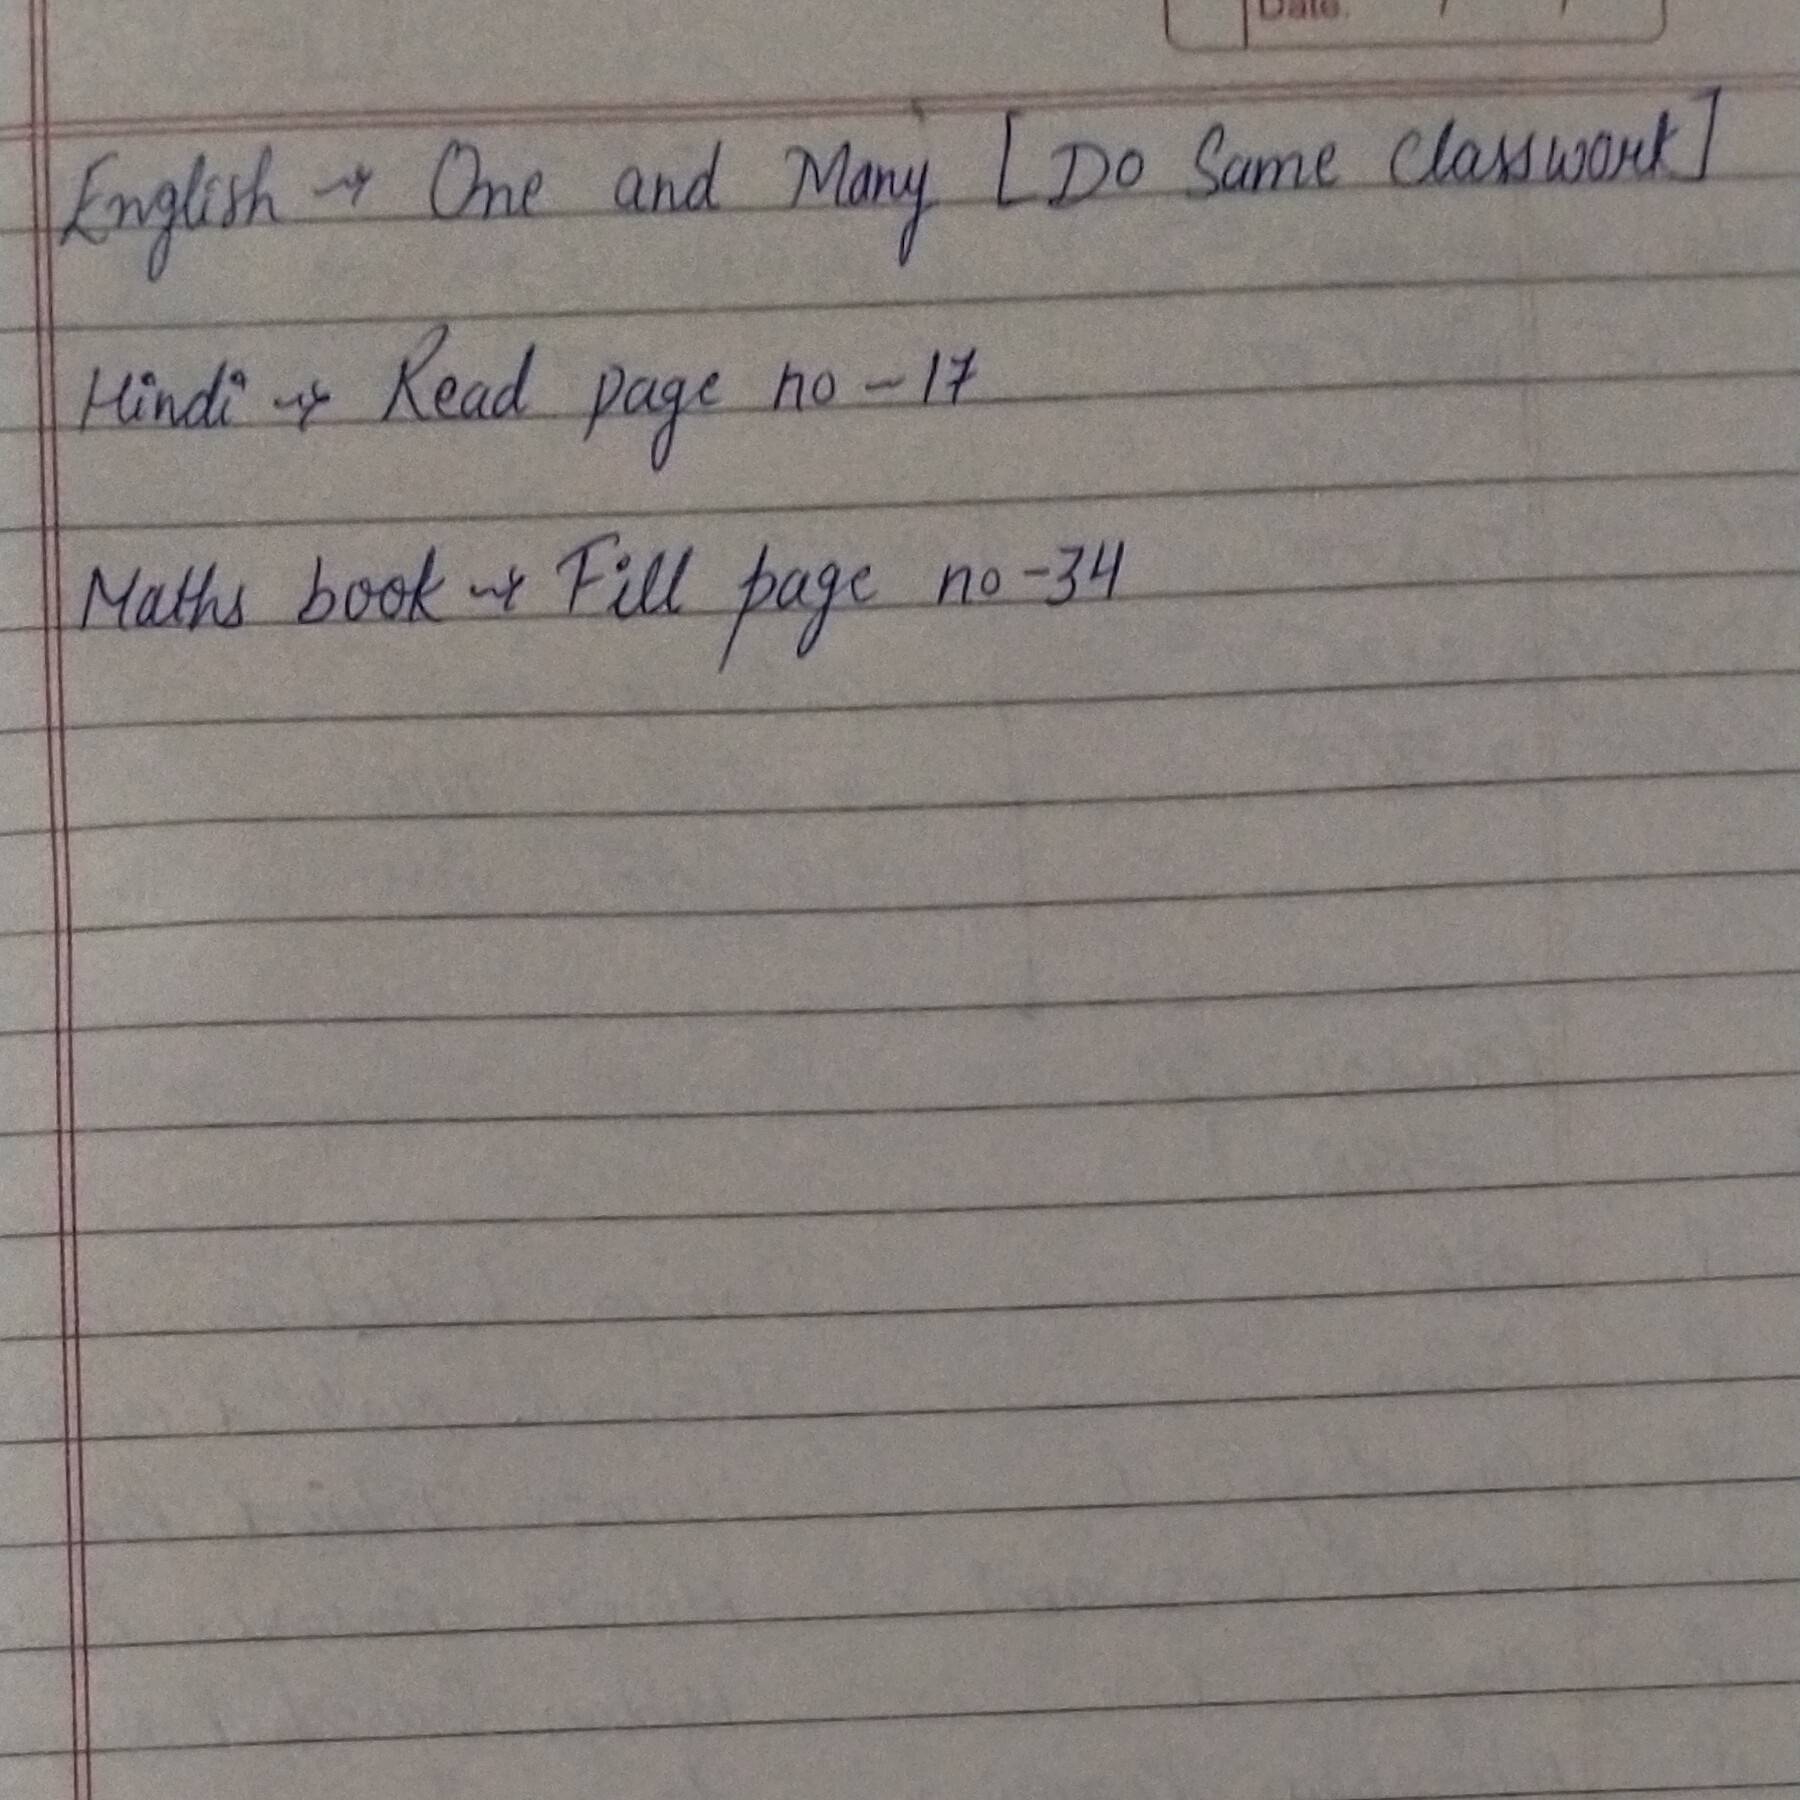 Date.
English → One and Many [Do Same Classwork]
Hindi → Read page no - 17
Maths book → Fill page no - 34